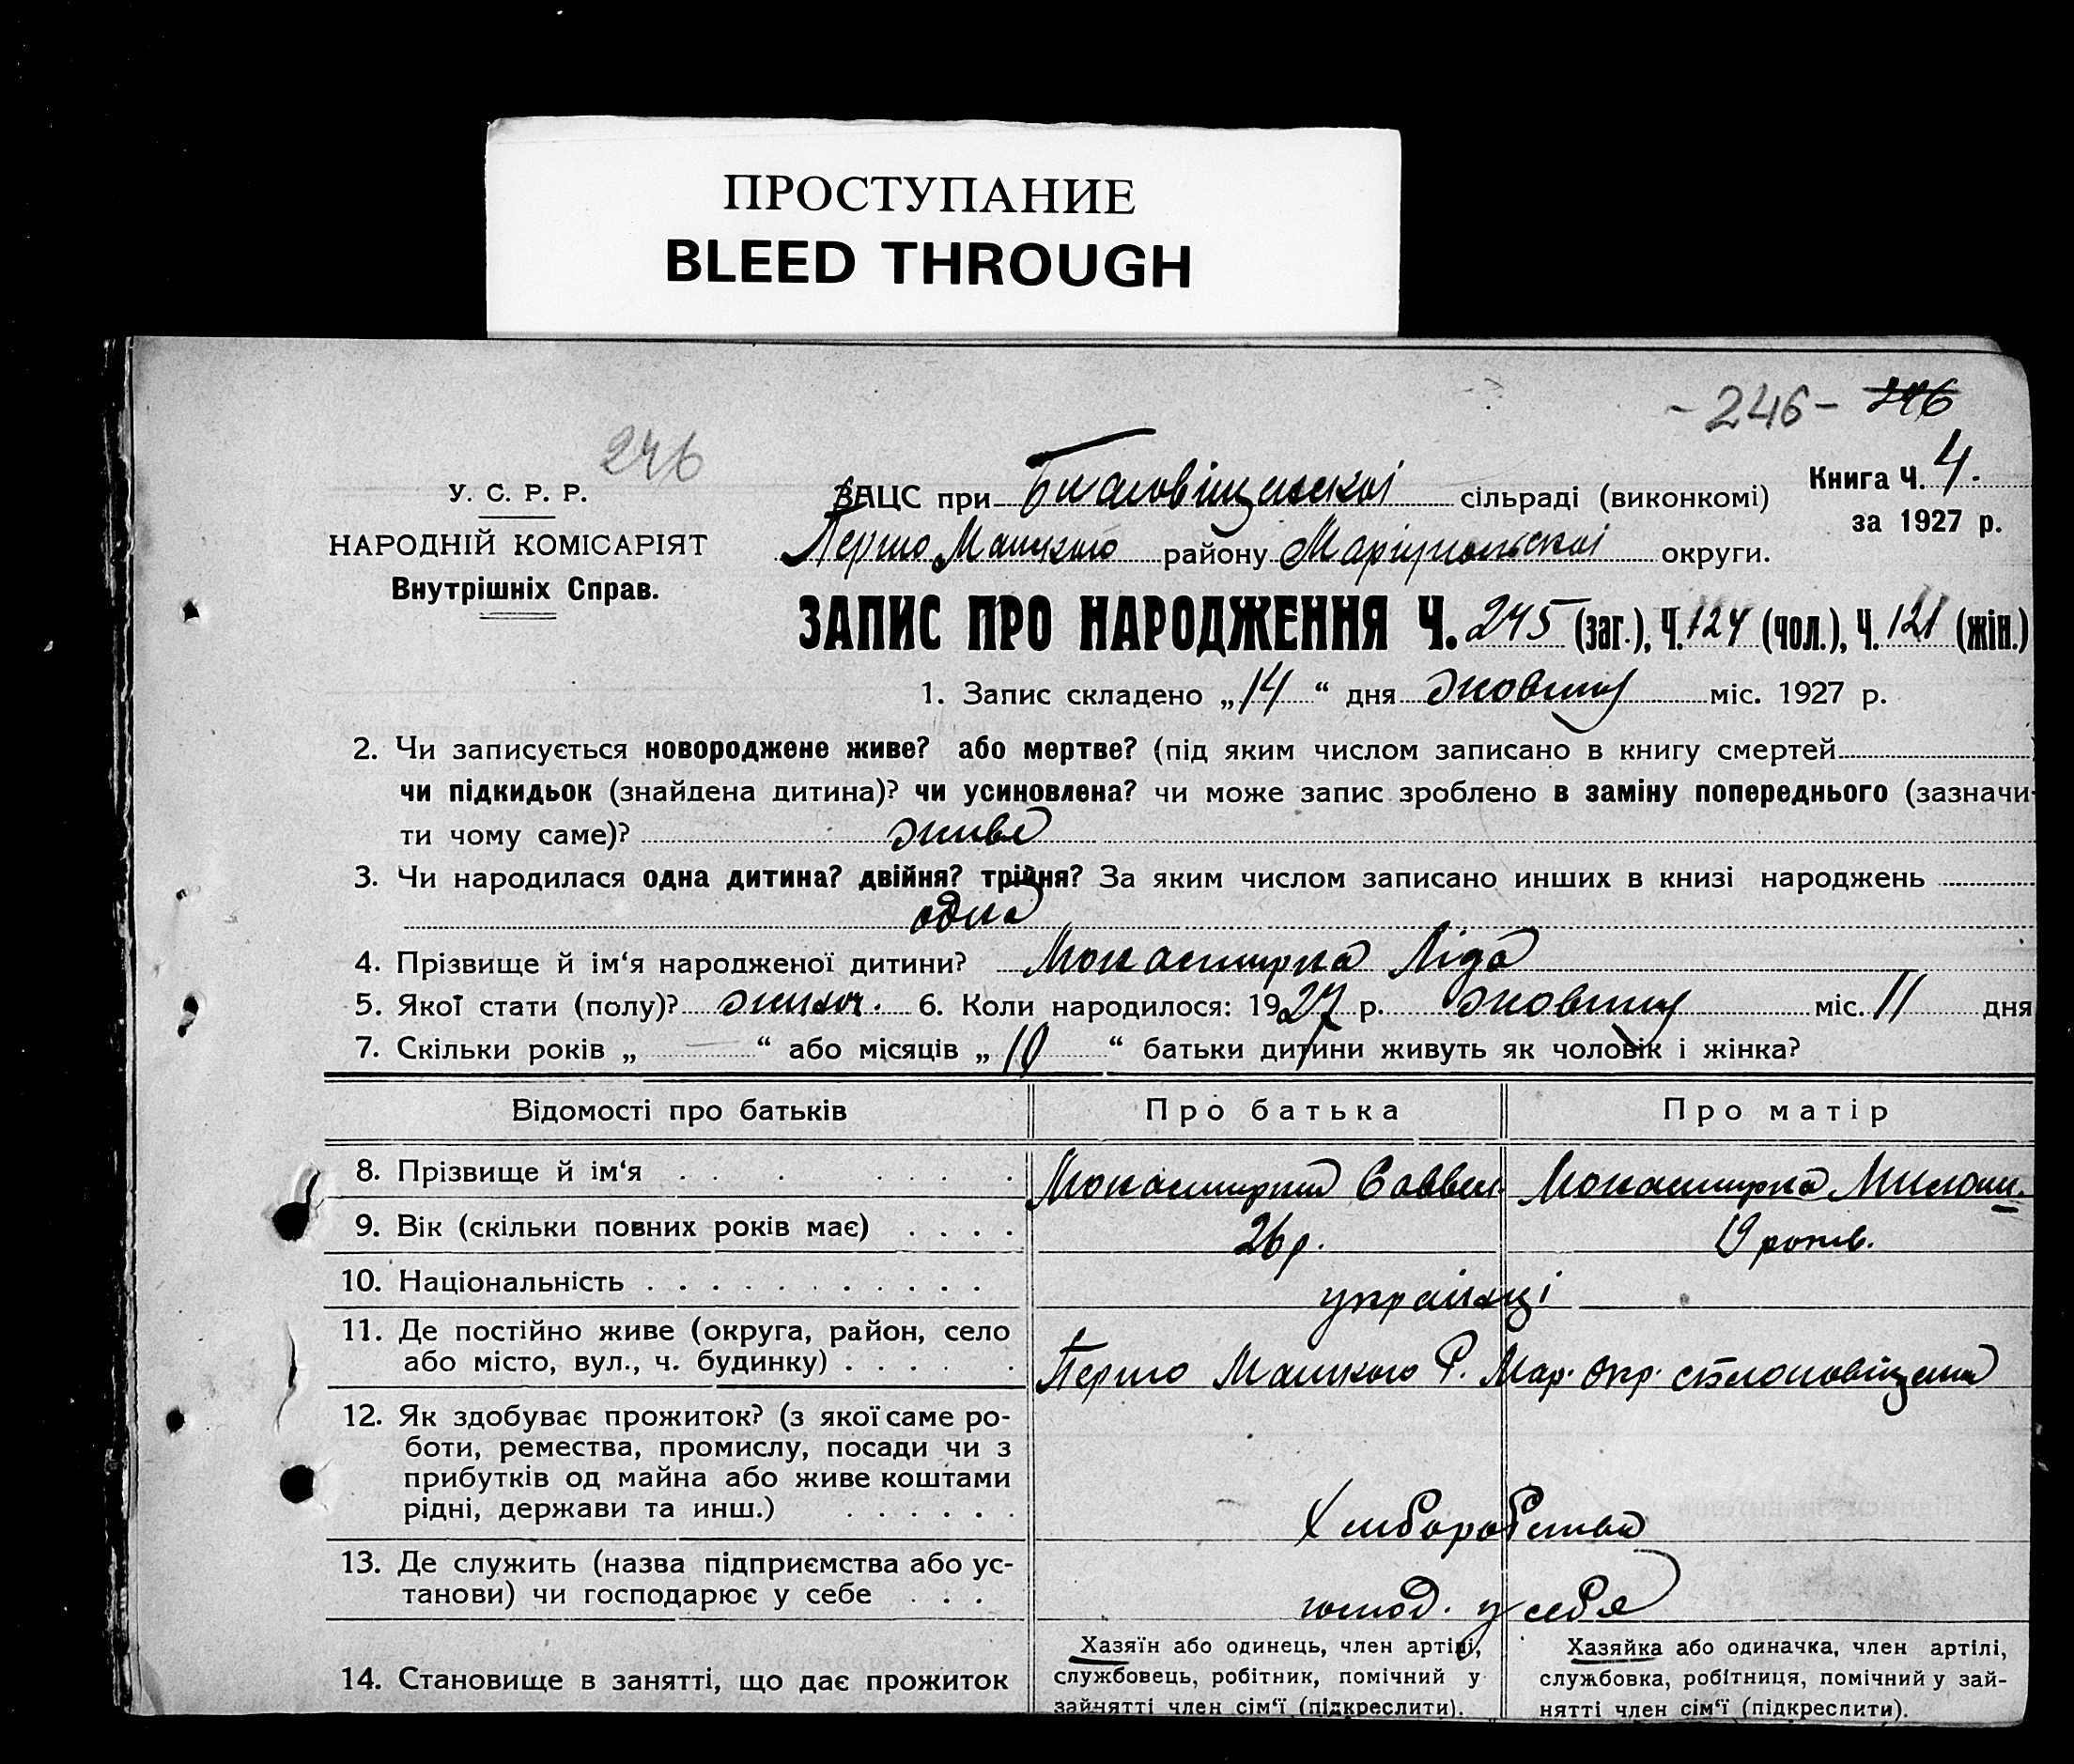 ПРОСТУПАНИЕ
BLEED THROUGH
-246- 246
246
Книга Ч. 4.
за 1927 р.
У. С. Р. Р.
НАРОДНІЙ КОМІСАРІЯТ
Внутрішніх Справ.
ЗАЦС при Благовіщенскоі сільраді (виконкомі)
району Маріупольскоі округи.
ЗАПИС ПРО НАРОДЖЕННЯ Ч. 245 (заг.), Ч. 124 (чол.), Ч. 121 (жін.)
1. Запис складено „14“ дня жовтня міс. 1927 р.
2. Чи записується новороджене живе? або мертве? (під яким числом записано в книгу смертей
чи підкидьок (знайдена дитина)? чи усиновлена? чи може запис зроблено в заміну попереднього (зазначи-
ти чому саме)? живе
3. Чи народилася одна дитина? двійня? трійня? За яким числом записано инших в книзі народжень
одна
4. Прізвище й ім‘я народженої дитини? Монастирна Ліда
5. Якої стати (полу)? жіноч. 6. Коли народилося: 1927 р. жовтня міс. 11 дня
7. Скільки років „ — “ або місяців „ 10 “ батьки дитини живуть як чоловік і жінка?
Відомості про батьків Про батька Про матір
8. Прізвище й ім‘я Монастирний Саввел. Монастирна
9. Вік (скільки повних років має) 26 р. 19 років.
10. Національність українці
11. Де постійно живе (округа, район, село
або місто, вул., ч. будинку) Р. Мар. окр.
12. Як здобуває прожиток? (з якої саме ро-
боти, ремества, промислу, посади чи з
прибутків од майна або живе коштами
рідні, держави та инш.) Хліборобства
13. Де служить (назва підприємства або ус-
танови) чи господарює у себе господ. у себя
14. Становище в занятті, що дає прожиток
Хазяїн або одинець, член артілі,
службовець, робітник, помічний у
зайнятті член сім‘ї (підкреслити).
Хазяйка або одиначка, член артілі,
службовка, робітниця, помічний у зай-
нятті член сім‘ї (підкреслити).